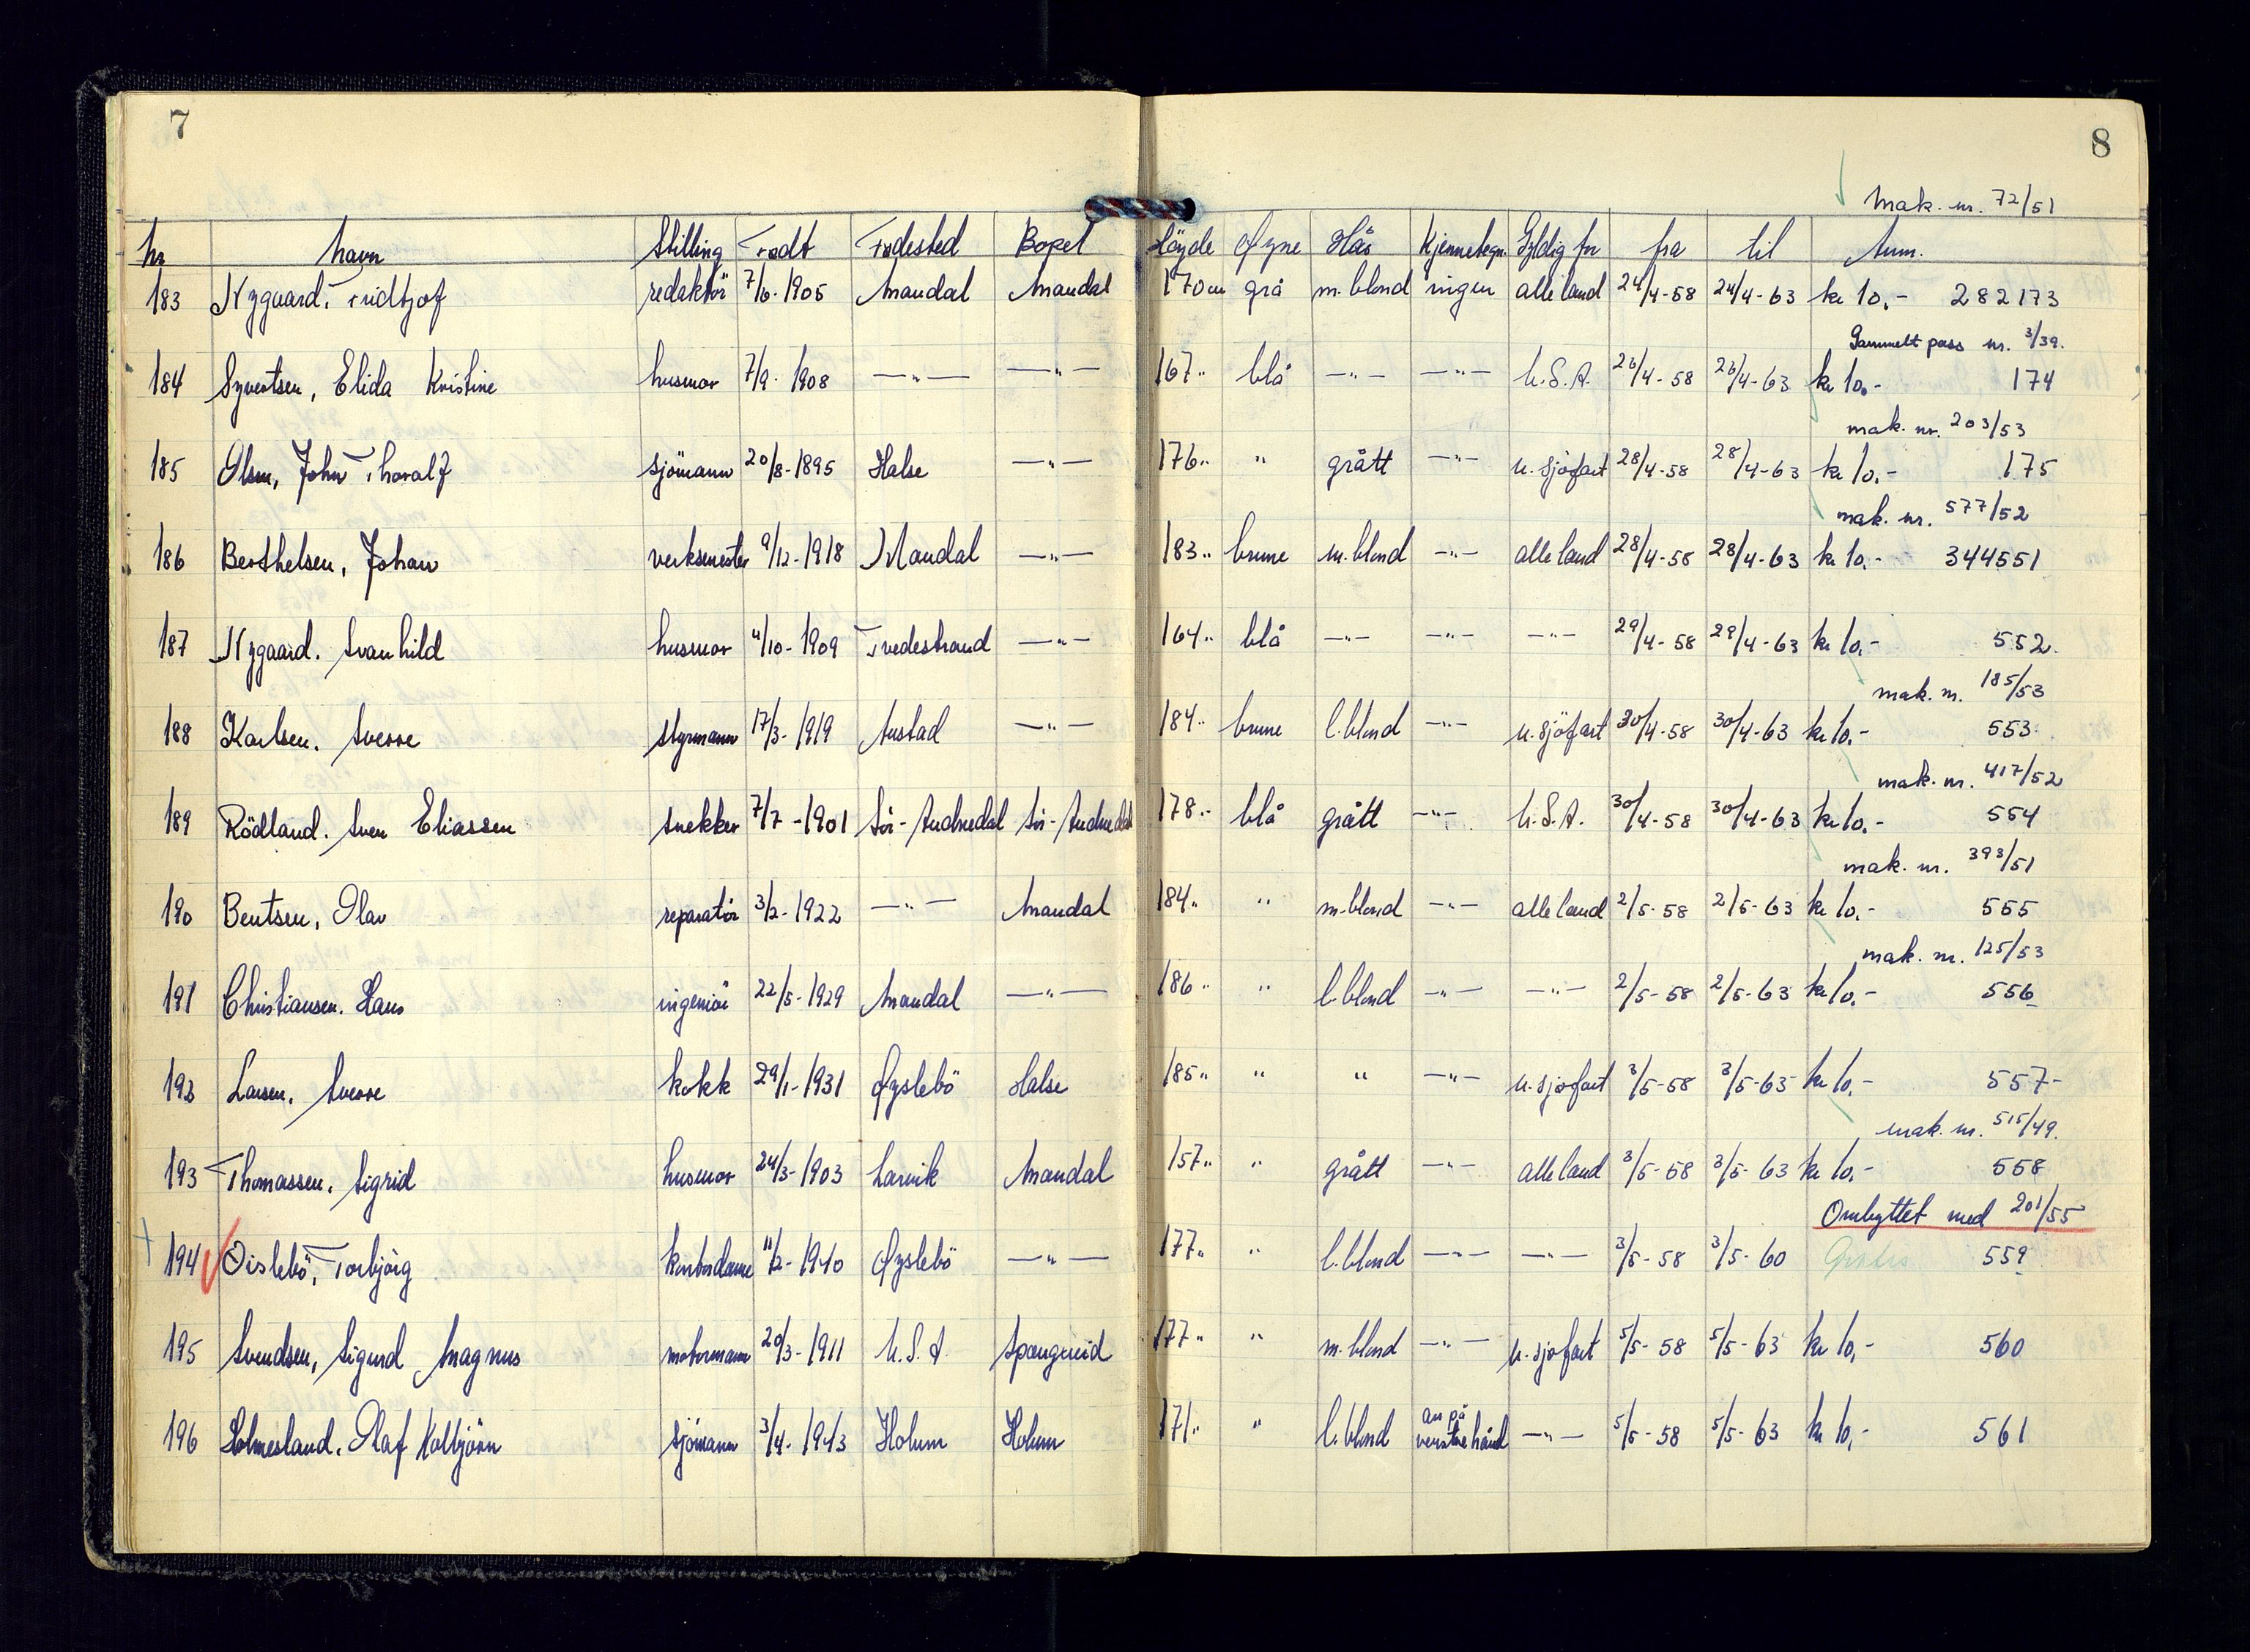 7
8
mak. nr. 72/51
nr navn Stilling Født Fødested Bopel Höyde Øyne Hår Kjennetegn. Gyldig for fra til Anm.
183 Nygaard, Fridtjof redaktör 7/6-1905 Mandal Mandal 170 cm grå m. blond ingen alle land 24/4-58 24/4-63 kr 10,- 282173
Gammelt pass nr. 3/39.
184 Syvertsen, Elida Kristine husmor 7/9-1908 —"— —"— 167" blå —"— —"— U.S.A. 26/4-58 26/4-63 kr 10,- 174
mak. nr. 203/53
185 Olsen, John Thoralf sjömann 20/8-1895 Halse —"— 176" " grått —"— u. sjöfart 28/4-58 28/4-63 kr 10,- 175
mak. nr. 577/52
186 Berthelsen, Johan verksmester 9/12-1918 Mandal —"— 183" brune m. blond —"— alle land 28/4-58 28/4-63 kr 10,- 344551
187 Nygaard. Svanhild husmor 4/10-1909 Tvedestrand —"— 164" blå —"— —"— —"— 29/4-58 29/4-63 kr 10,- 552.
mak. nr. 185/53
188 Karlsen. Sverre styrmann 17/3-1919 Austad —"— 184" brune l. blond —"— u. sjöfart 30/4-58 30/4-63 kr 10,- 553
mak. nr. 417/52
189 Rödland. Sven Eliassen snekker 7/7-1901 Sör-Audnedal Sör-Audnedal 178" blå grått —"— U.S.A. 30/4-58 30/4-63 kr 10,- 554
mak. nr. 393/51
190 Bentsen, Olav reparatör 3/2-1922 —"— Mandal 184" " m. blond —"— alle land 2/5-58 2/5-63 kr 10,- 555
mak. nr. 125/53
191 Christiansen. Hans ingeniör 22/5-1929 Mandal —"— 186" " l. blond —"— —"— 2/5-58 2/5-63 kr 10,- 556
192 Larsen. Sverre kokk 29/1-1931 Øyslebö Halse 185" " " —"— u. sjöfart 3/5-58 3/5-63 kr 10,- 557-
mak. nr. 515/49.
193 Thomassen. Sigrid husmor 24/3-1903 Larvik Mandal 157" " grått —"— alle land 3/5-58 3/5-63 kr 10,- 558
Ombyttet med 201/55
194 Öislebö, Torbjörg kontordame 11/2-1940 Øyslebö —"— 177" " l. blond —"— —"— 3/5-58 3/5-60 Gratis 559
195 Svendsen, Sigurd Magnus motormann 20/3-1911 U.S.A. Spangereid 177" " m. blond —"— u. sjöfart 5/5-58 5/5-63 kr 10,- 560
196 Holmesland. Olaf Kolbjörn sjömann 3/4-1943 Holum Holum 171" " l. blond arr på venstre hånd —"— 5/5-58 5/5-63 kr 10,- 561